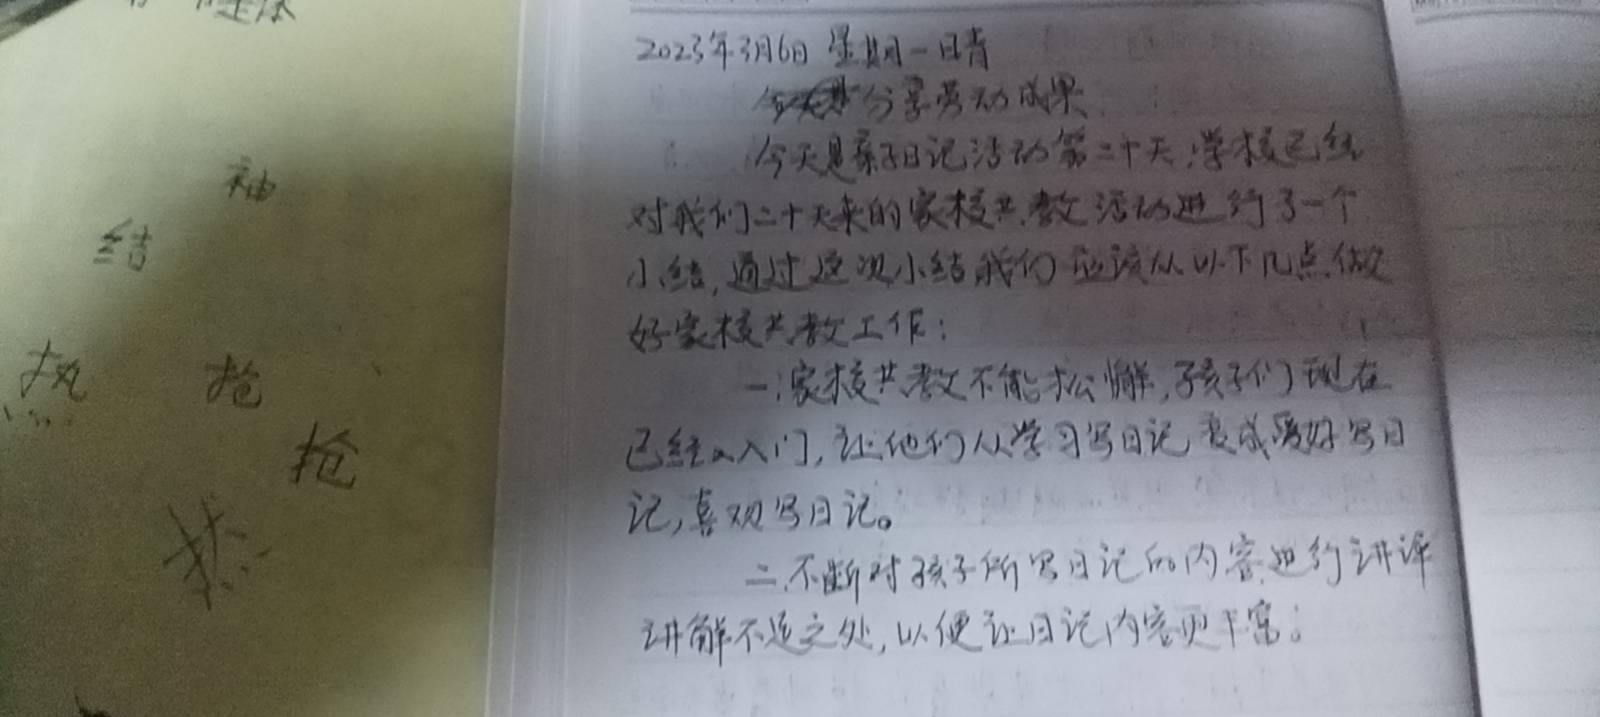 袖
结
热
抢
抢
热
2023年3月6日 星期一 晴
分享劳动成果
今天是亲子日记活动第二十天,学校已经
对我们二十天来的家校共教活动进行了一个
小结,通过这次小结我们应该从以下几点做
好家校共教工作:
一、家校共教不能松懈,孩子们现在
已经入门,让他们从学习写日记变成爱好写日
记,喜欢写日记。
二、不断对孩子所写日记的内容进行讲评
讲解不足之处,以便让日记内容更丰富。